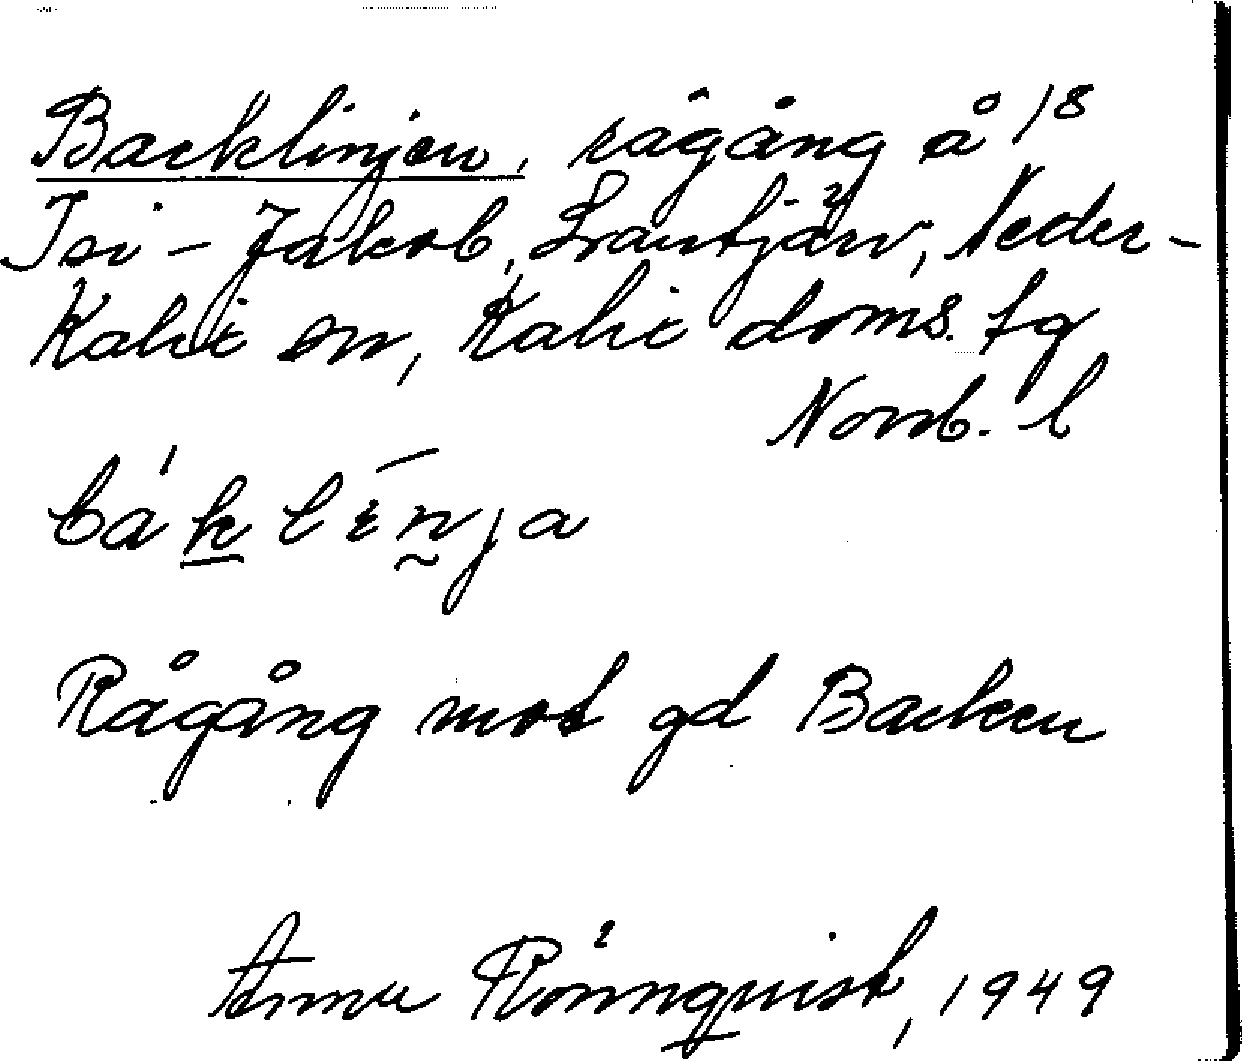 Backlinjen, rågång å 18
Isi-Jakob, Svartjärv, Neder-
Kalix sn, Kalix doms. fg
Norrb. l
bák lì̄nja
Rågång mot gd Backen
Rönnquist, 1949